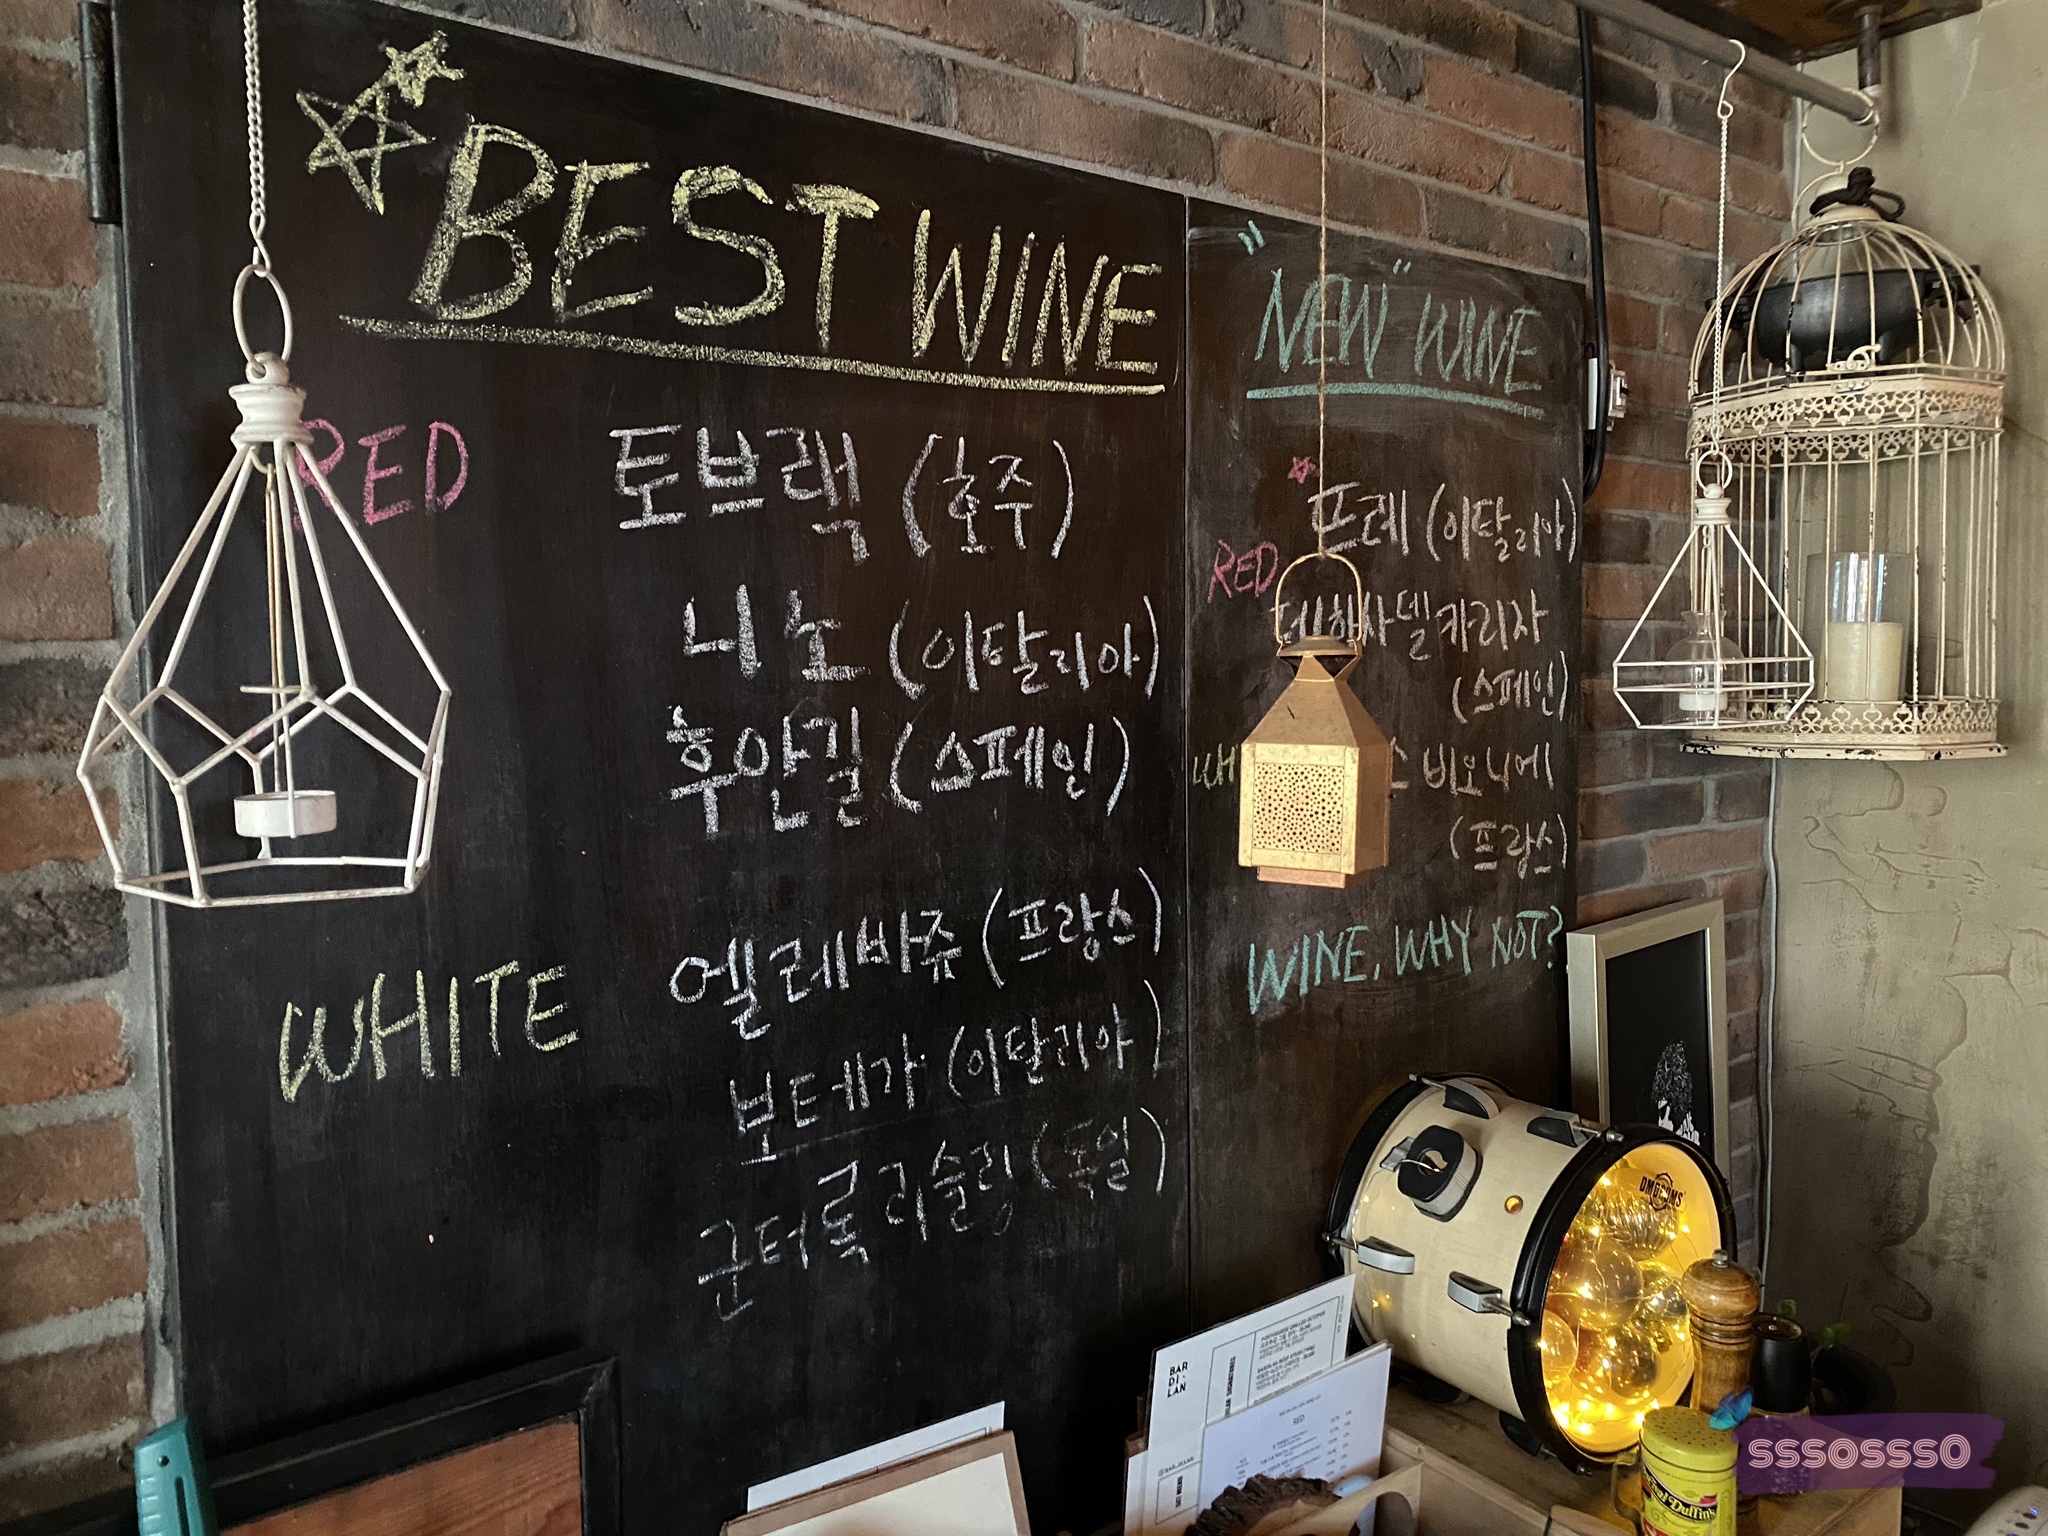 BEST WINE
RED
토브랙 (호주)
니노 (이탈리아)
후안길 (스페인)
WHITE
엘레바쥬 (프랑스)
보테가 (이탈리아)
군터록 리슬링 (독일)
"NEW" WINE
RED
프레 (이탈리아)
데하사델카리자
(스페인)
비오니에
(프랑스)
WINE, WHY NOT?
BAR
DI·
LAN
RED
sssosss0